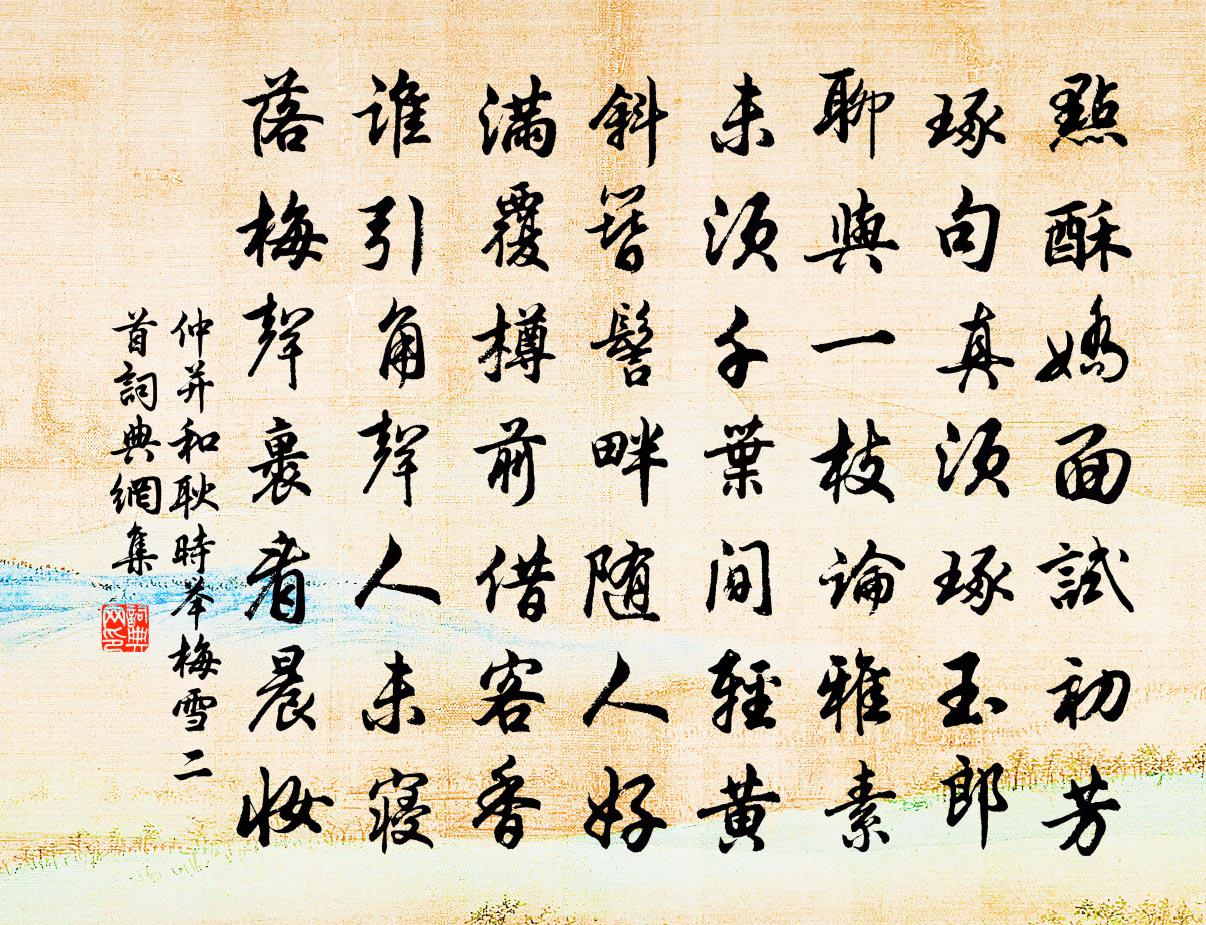 點酥嬌面試初芳
琢句真須琢玉郎
聊與一枝論雅素
未須千葉間輕黃
斜簪髻畔随人好
滿覆樽前借客香
誰引角聲人未寢
落梅聲裏看晨妝
仲并和耿時举梅雪二
首詞典網集
詞典网印